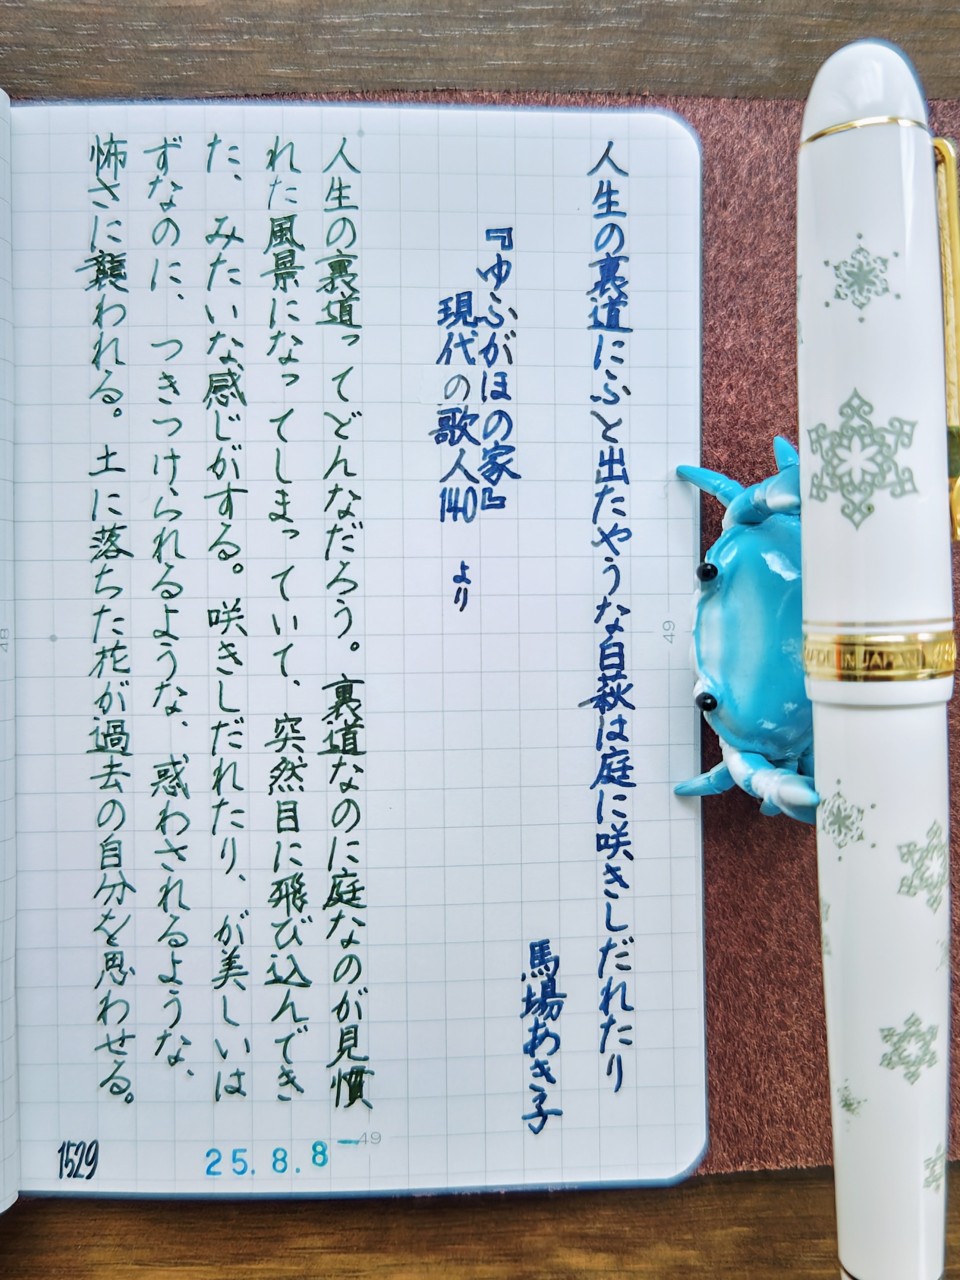 人生の裏道にふと出たやうな白萩は庭に咲きしだれたり
馬場あき子
『ゆふがほの家』
現代の歌人140 より
人生の裏道ってどんなだろう。裏道なのに庭なのが見慣
れた風景になってしまっていて、突然目に飛び込んでき
た、みたいな感じがする。咲きしだれたり、が美しいは
ずなのに、つきつけられるような、惑わされるような、
怖さに襲われる。土に落ちた花が過去の自分を思わせる。
25.8.8
1529
49
49
48
MADE IN JAPAN